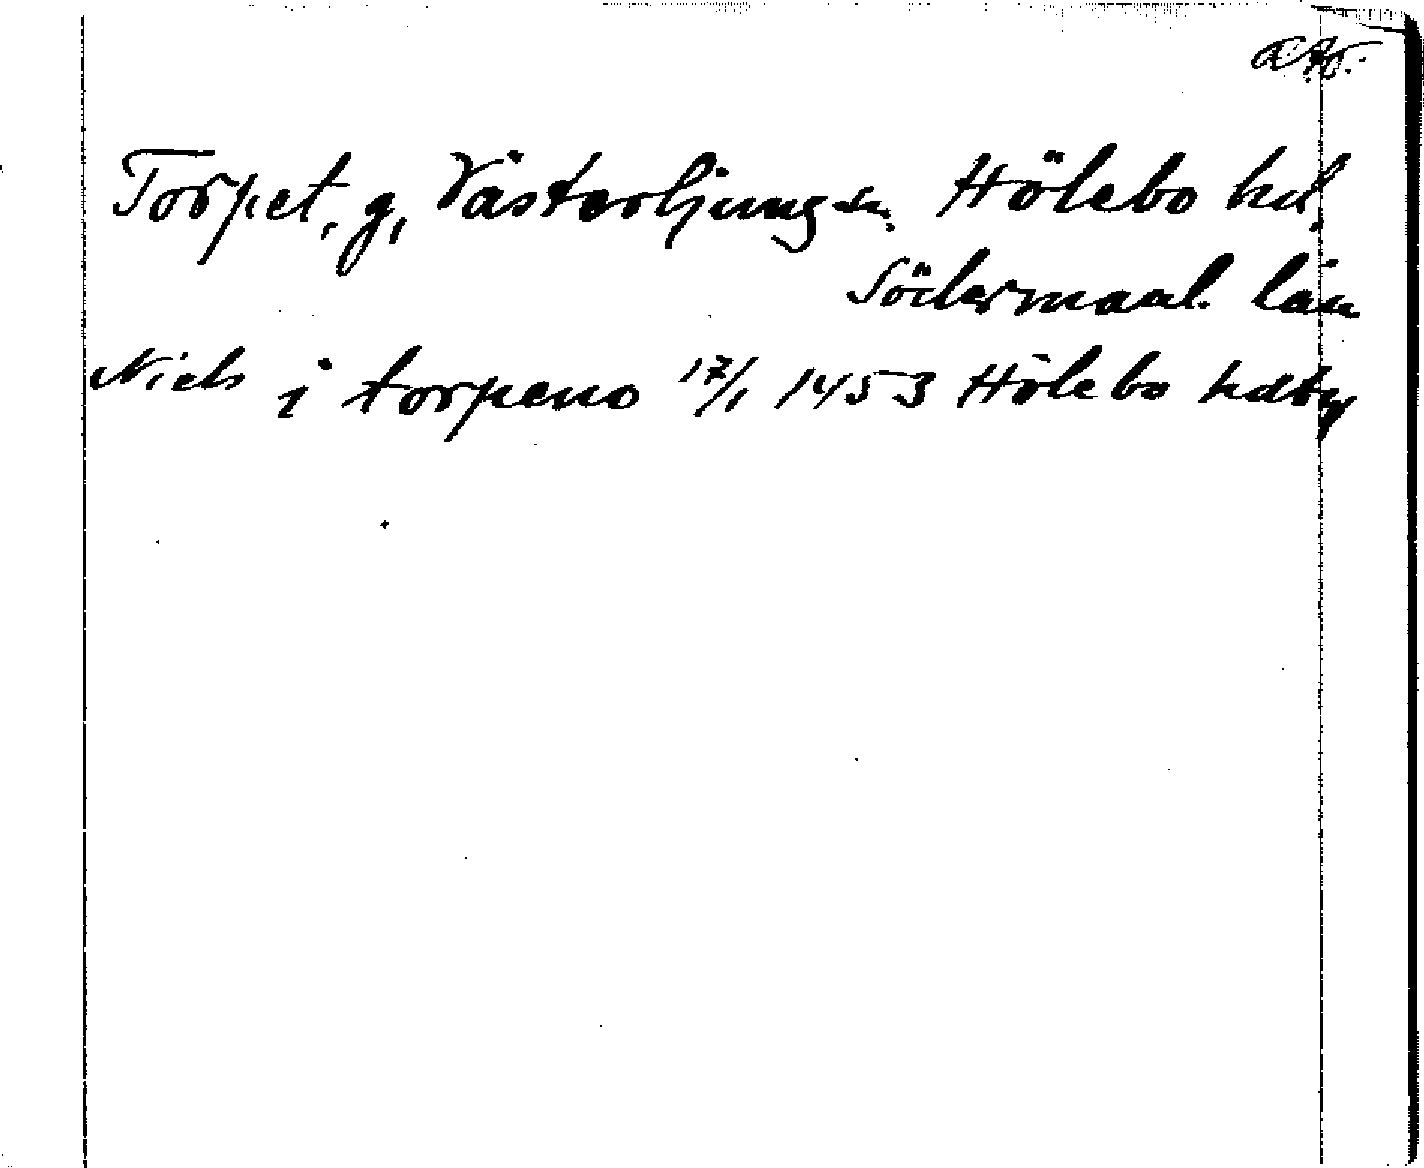 Torpet, g, Västerljung sn. Hölebo hd.
Södermanl. län
Niels i torpeno 17/1 1453 Hölebo hdby